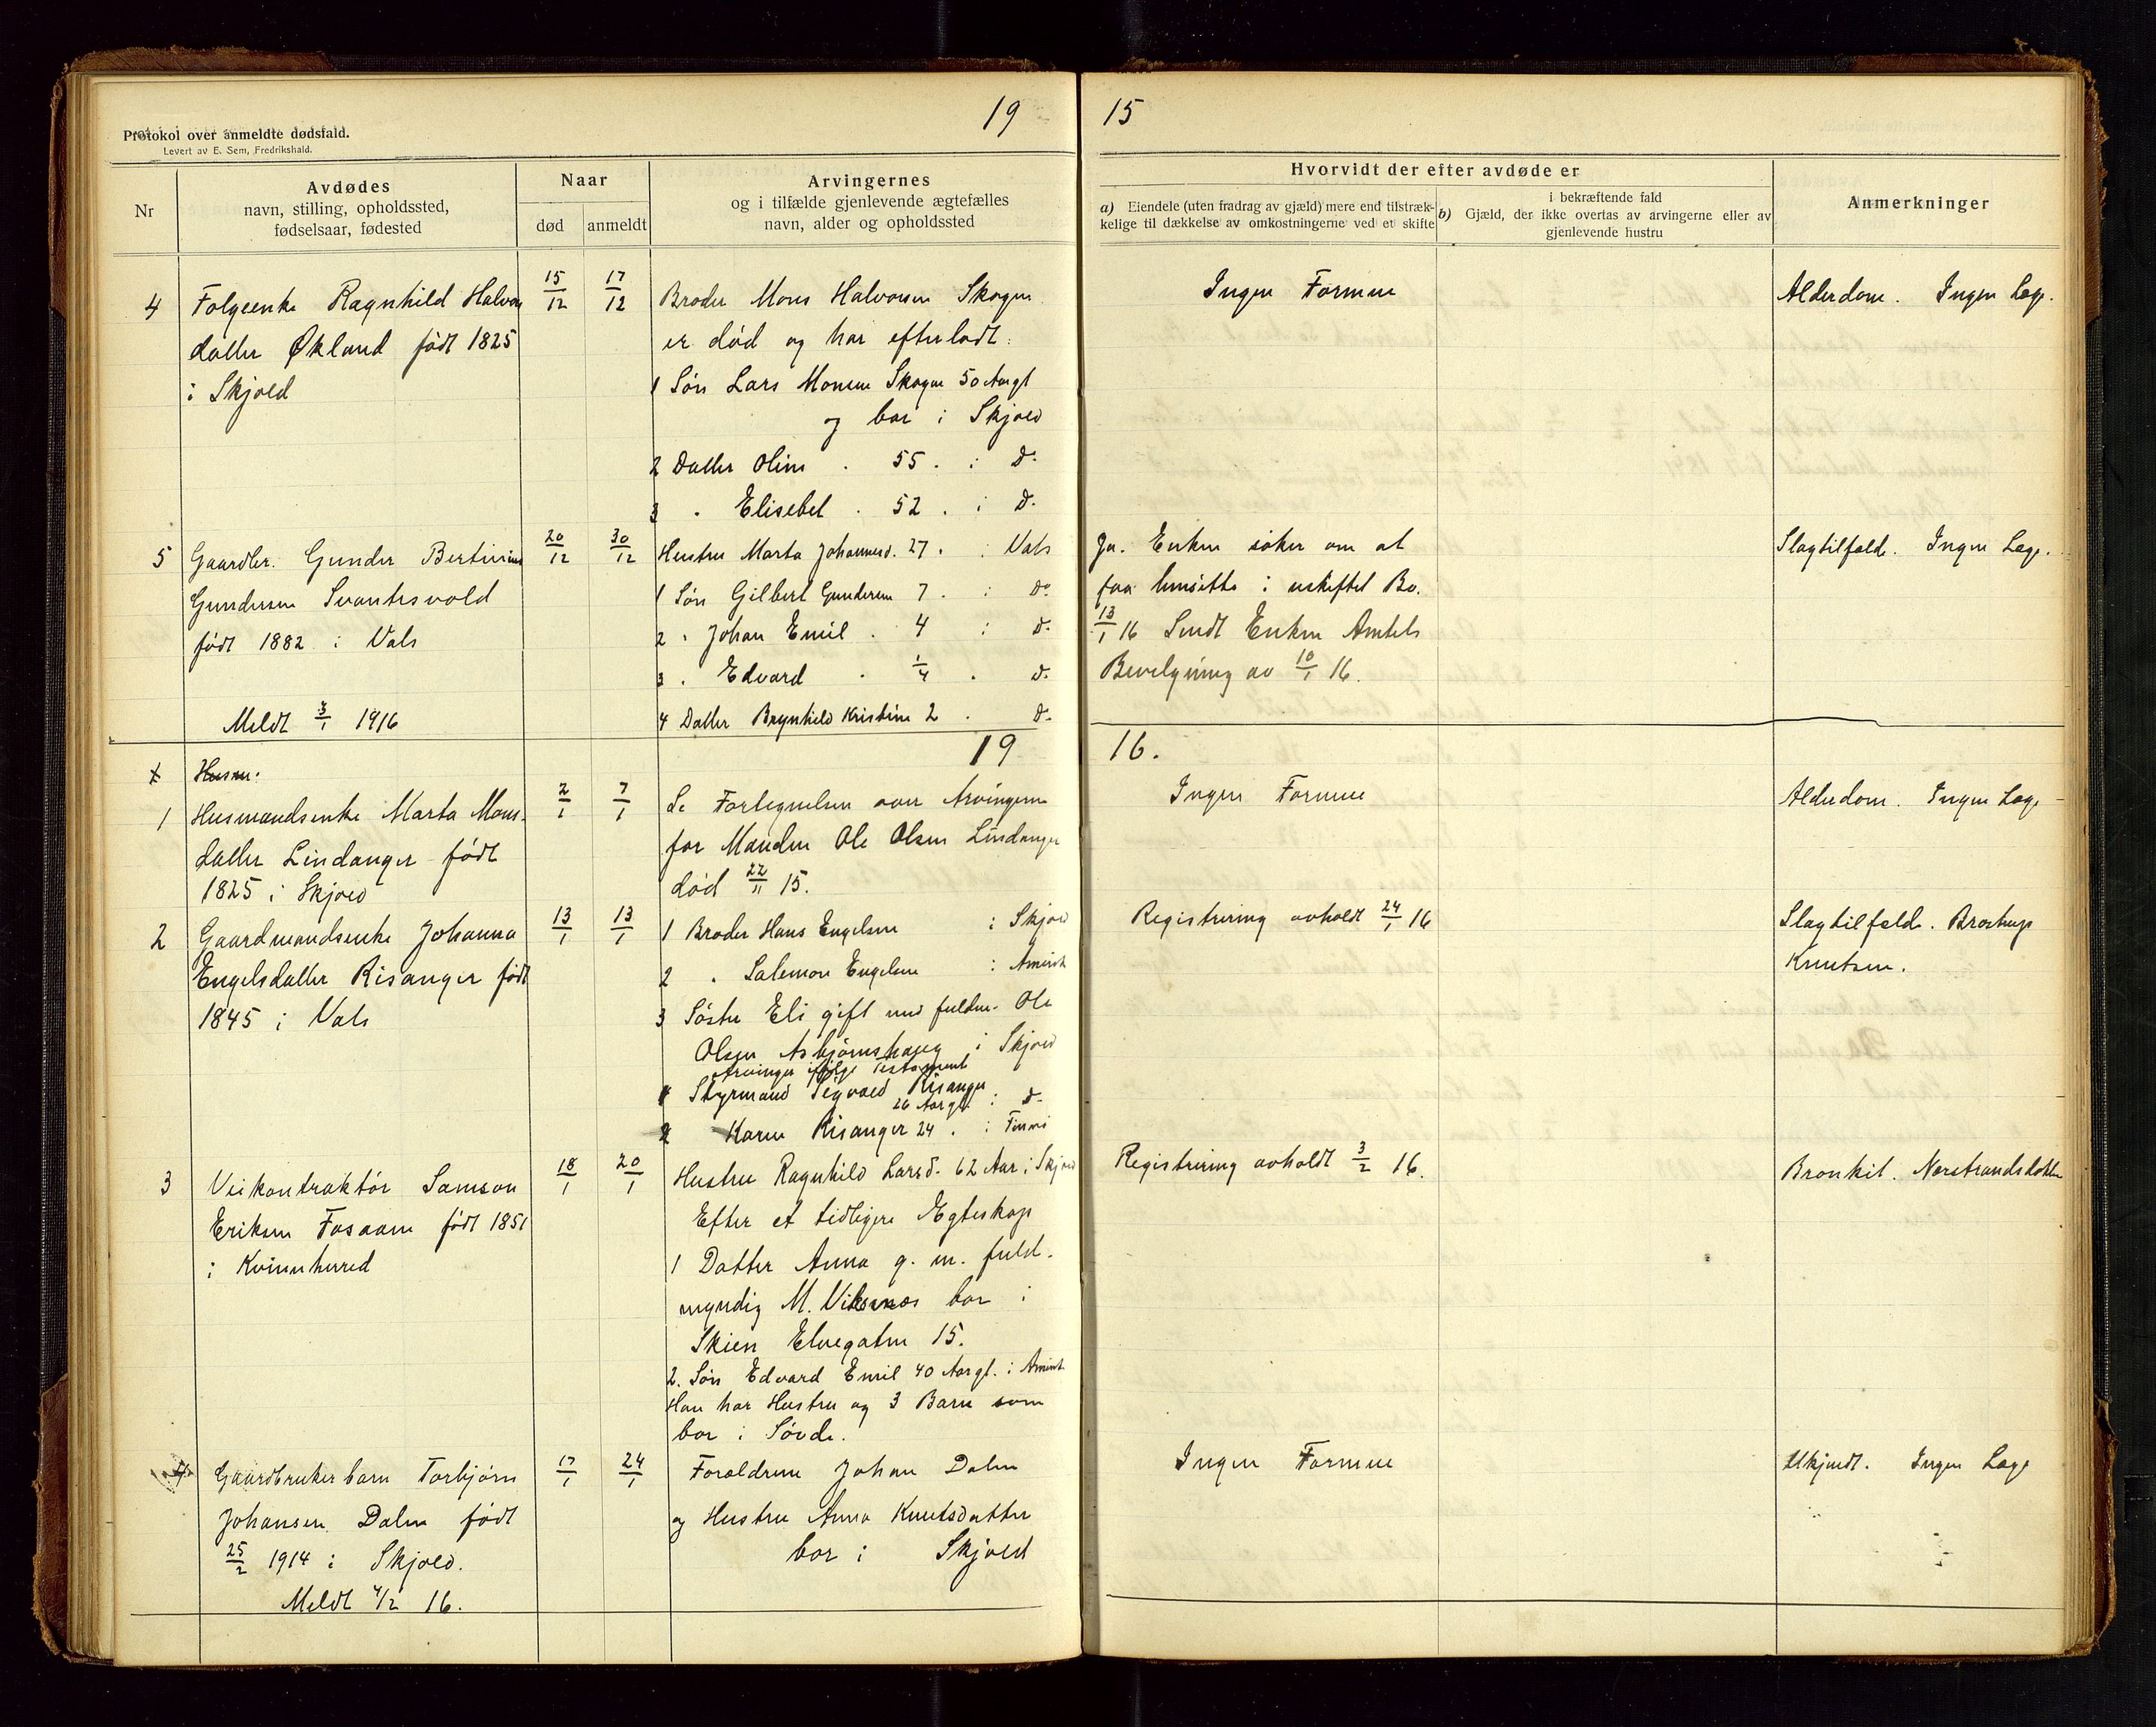 19 15
Protokol over anmeldte dødsfald.
Levert av E. Sem, Fredrikshald.
Nr
Avdødes
navn, stilling, opholdssted,
fødselsaar, fødested
Naar
død anmeldt
Arvingernes
og i tilfælde gjenlevende ægtefælles
navn, alder og opholdssted
Hvorvidt der efter avdøde er
a) Eiendele (uten fradrag av gjæld) mere end tilstræk-
kelige til dækkelse av omkostningerne ved et skifte
i bekræftende fald
b) Gjæld, der ikke overtas av arvingerne eller av
gjenlevende hustru
Anmerkninger
4 Folgeenke Ragnhild Halvors
datter Økland født 1825
i Skjold
15/12 17/12
Broder Mons Halvorsen Skogen
er død og har efterladt:
1 Søn Lars Monsen Skogen 50 Aargl
og bor i Skjold
2 Datter Oline . 55 . i do
3 " Elisebet . 52 . i do
Ingen Formue
Alderdom. Ingen Læge.
5 Gaardbr. Gunder Bertinius
Gundersen Svantesvold
født 1882 i Vats
Meldt 3/1 1916
20/12 30/12
Hustru Marta Johannesd. 27 . i Vats
1 Søn Gilbert Gundersen 7 . i do
2 " Johan Emil . 4 i do
3 " Edvard . 1/4 . do
4 Datter Brynhild Kristine 2 . do
Ja. Enken søker om at
faa hensitte i uskiftet Bo.
13/1 16 Sendt Enken Amtets
Bevilgning av 10/1 16.
Slagtilfælde. Ingen Læge.
19 16.
1 Husm.
1 Husmandsenke Marta Mons-
datter Lindanger født
1825 i Skjold
2/1 7/1
Se Fortegnelsen over Arvingerne
for Manden Ole Olsen Lindanger
død 22/11 15.
Ingen Formue
Alderdom. Ingen Læge
2 Gaardmandsenke Johanna
Engelsdatter Risanger født
1845 i Vats
13/1 13/1
1 Broder Hans Engelsen i Skjold
2 " Salemon Engelsen i Amerik
3 Søster Eli gift med fuldm. Ole
Olsen Asbjørnshaug i Skjold
Arvinger ifølge Testament
1 Styrmand Sigvald Risanger
26 Aargl. i do
2 Karen Risanger 24 . i
Registrering avholdt 24/1 16
Slagtilfælde. Brostrup
Knutsen.
3 Veikontraktør Samson
Eriksen Fosaaen født 1851
i Kvinnherred
18/1 20/1
Hustru Ragnhild Larsd. 62 Aar i Skjold
Efter et tidligere Egteskap
1 Datter Anna g. m. fuld-
myndig M. Viksenæs bor i
Skien Elvegaten 15.
2. Søn Edvard Emil 40 Aargl. i Amerik
Han har Hustru og 3 Barn som
bor i Søvde.
Registrering avholdt 3/2 16.
Bronkit. Norstrandsdokter
4 Gaardbruker barn Torbjørn
Johansen Dalen født
25/2 1914 i Skjold.
Meldt 4/2 16.
17/1 24/1
Foreldrene Johan Dalen
og Hustru Anna Knutsdatter
bor i Skjold
Ingen Formue
Ukjendt. Ingen Læge